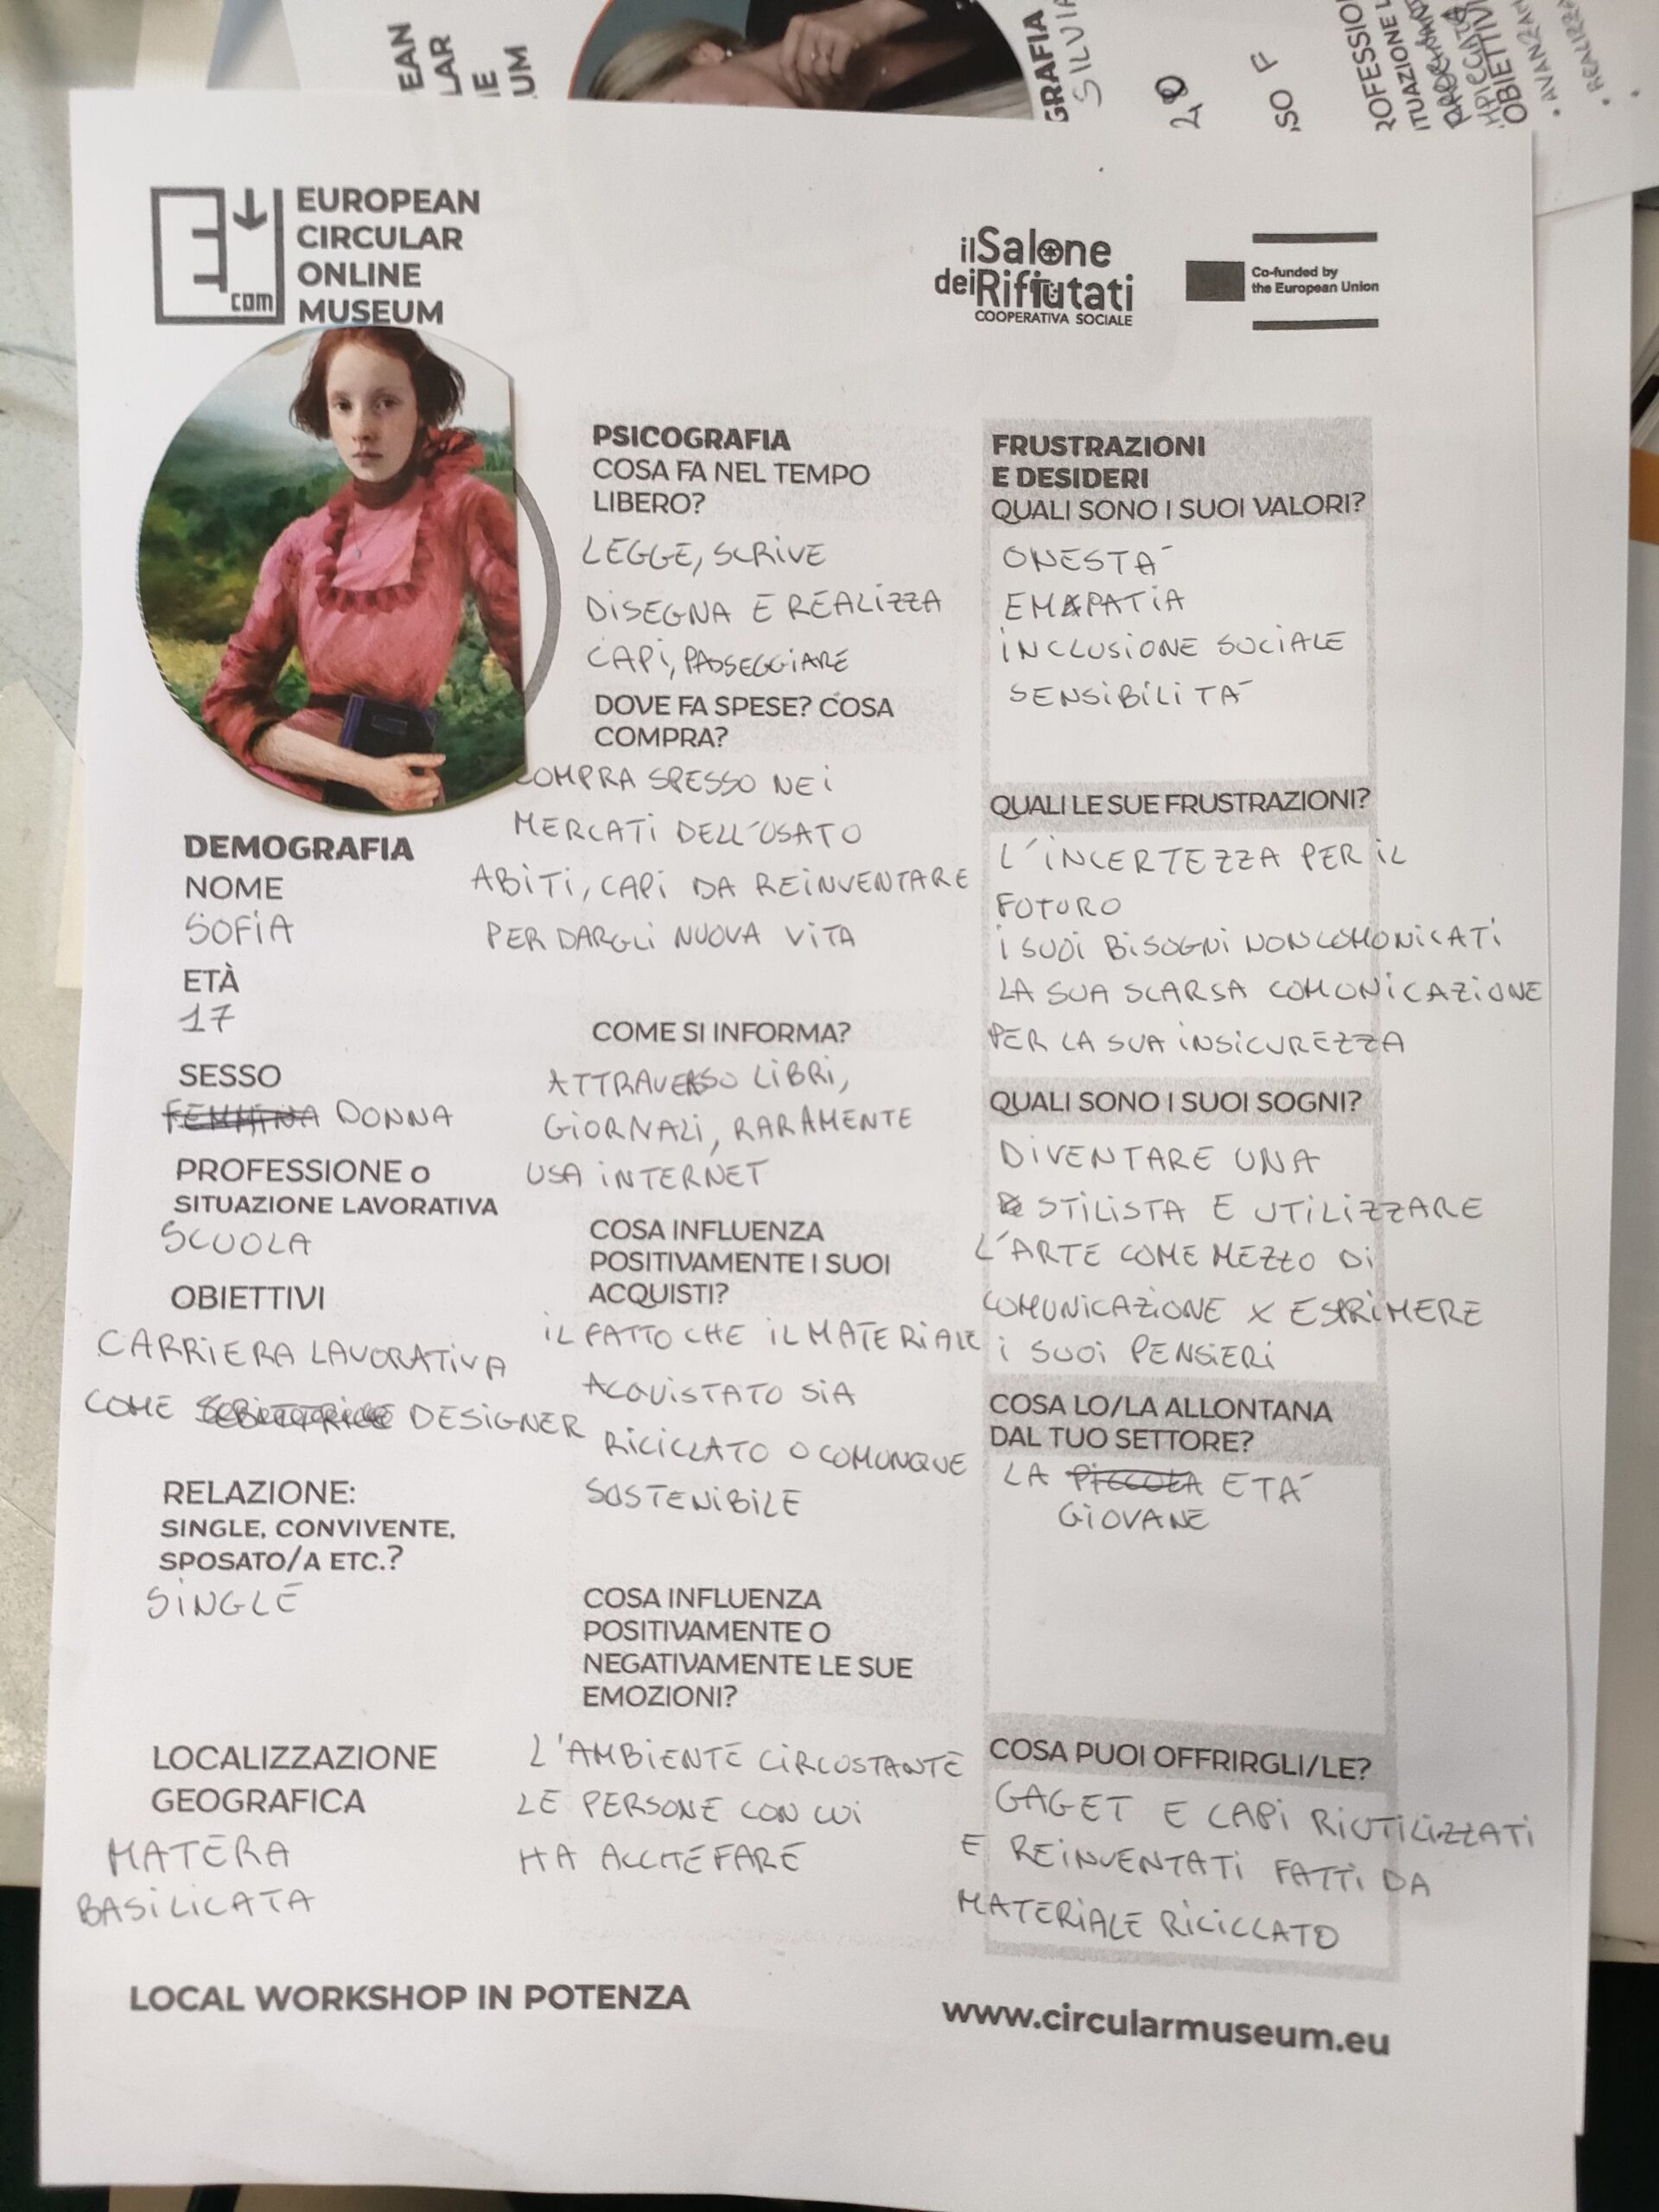 EAN
LAR
NE
UM
GRAFIA
SILVIA
28
SO F
ROFESSIO
ITUAZIONE L
OBIETTIVI
• AVANZAM
• REALIZZA
E
com
EUROPEAN
CIRCULAR
ONLINE
MUSEUM
il Salone
dei Rifiutati
COOPERATIVA SOCIALE
Co-funded by
the European Union
DEMOGRAFIA
NOME
SOFIA
ETÀ
17
SESSO
FEMMINA DONNA
PROFESSIONE o
SITUAZIONE LAVORATIVA
SCUOLA
OBIETTIVI
CARRIERA LAVORATIVA
COME DESIGNER
RELAZIONE:
SINGLE, CONVIVENTE,
SPOSATO/A ETC.?
SINGLE
LOCALIZZAZIONE
GEOGRAFICA
MATERA
BASILICATA
PSICOGRAFIA
COSA FA NEL TEMPO
LIBERO?
LEGGE, SCRIVE
DISEGNA E REALIZZA
CAPI, PASSEGGIARE
DOVE FA SPESE? COSA
COMPRA?
COMPRA SPESSO NEI
MERCATI DELL'USATO
ABITI, CAPI DA REINVENTARE
PER DARGLI NUOVA VITA
COME SI INFORMA?
ATTRAVERSO LIBRI,
GIORNALI, RARAMENTE
USA INTERNET
COSA INFLUENZA
POSITIVAMENTE I SUOI
ACQUISTI?
IL FATTO CHE IL MATERIALE
ACQUISTATO SIA
RICICLATO O COMUNQUE
SOSTENIBILE
COSA INFLUENZA
POSITIVAMENTE O
NEGATIVAMENTE LE SUE
EMOZIONI?
L'AMBIENTE CIRCOSTANTE
LE PERSONE CON CUI
HA ACCHE FARE
FRUSTRAZIONI
E DESIDERI
QUALI SONO I SUOI VALORI?
ONESTA'
EMPATIA
INCLUSIONE SOCIALE
SENSIBILITA'
QUALI LE SUE FRUSTRAZIONI?
L'INCERTEZZA PER IL
FUTURO
I SUOI BISOGNI NON COMONICATI
LA SUA SCARSA COMONICAZIONE
PER LA SUA INSICUREZZA
QUALI SONO I SUOI SOGNI?
DIVENTARE UNA
STILISTA E UTILIZZARE
L'ARTE COME MEZZO DI
COMUNICAZIONE X ESPRIMERE
I SUOI PENSIERI
COSA LO/LA ALLONTANA
DAL TUO SETTORE?
LA PICCOLA ETA'
GIOVANE
COSA PUOI OFFRIRGLI/LE?
GAGET E CAPI RIUTILIZZATI
E REINVENTATI FATTI DA
MATERIALE RICICLATO
LOCAL WORKSHOP IN POTENZA
www.circularmuseum.eu